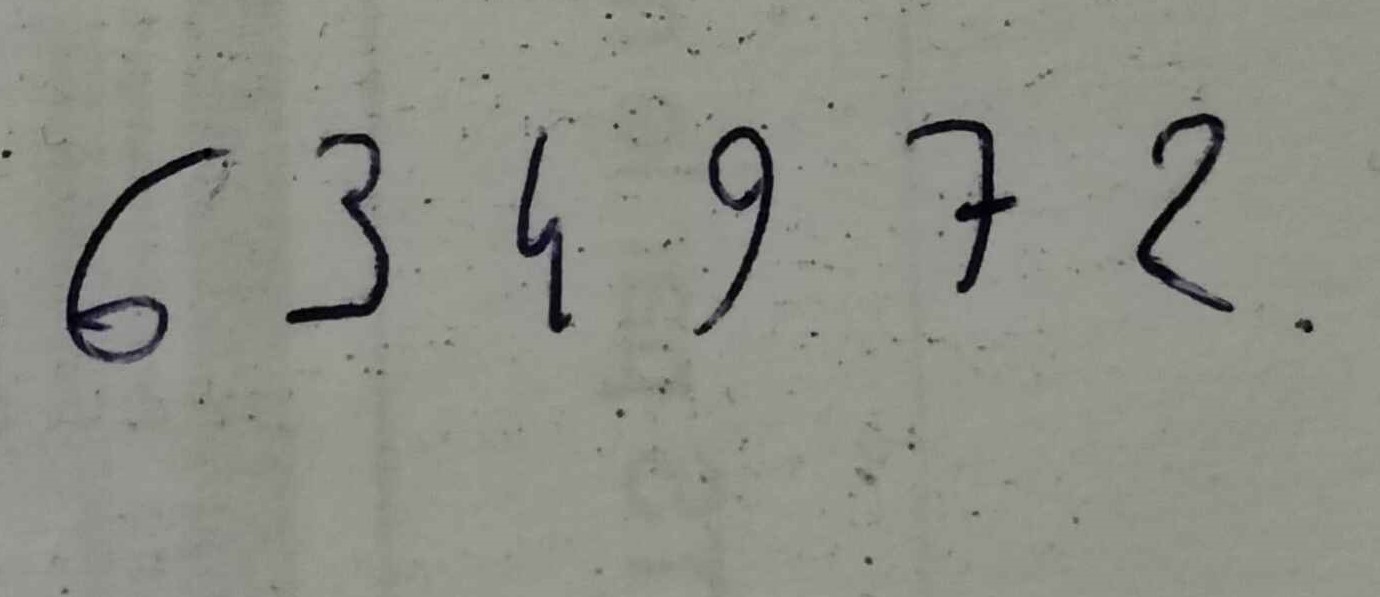 6 3 4 9 7 2.